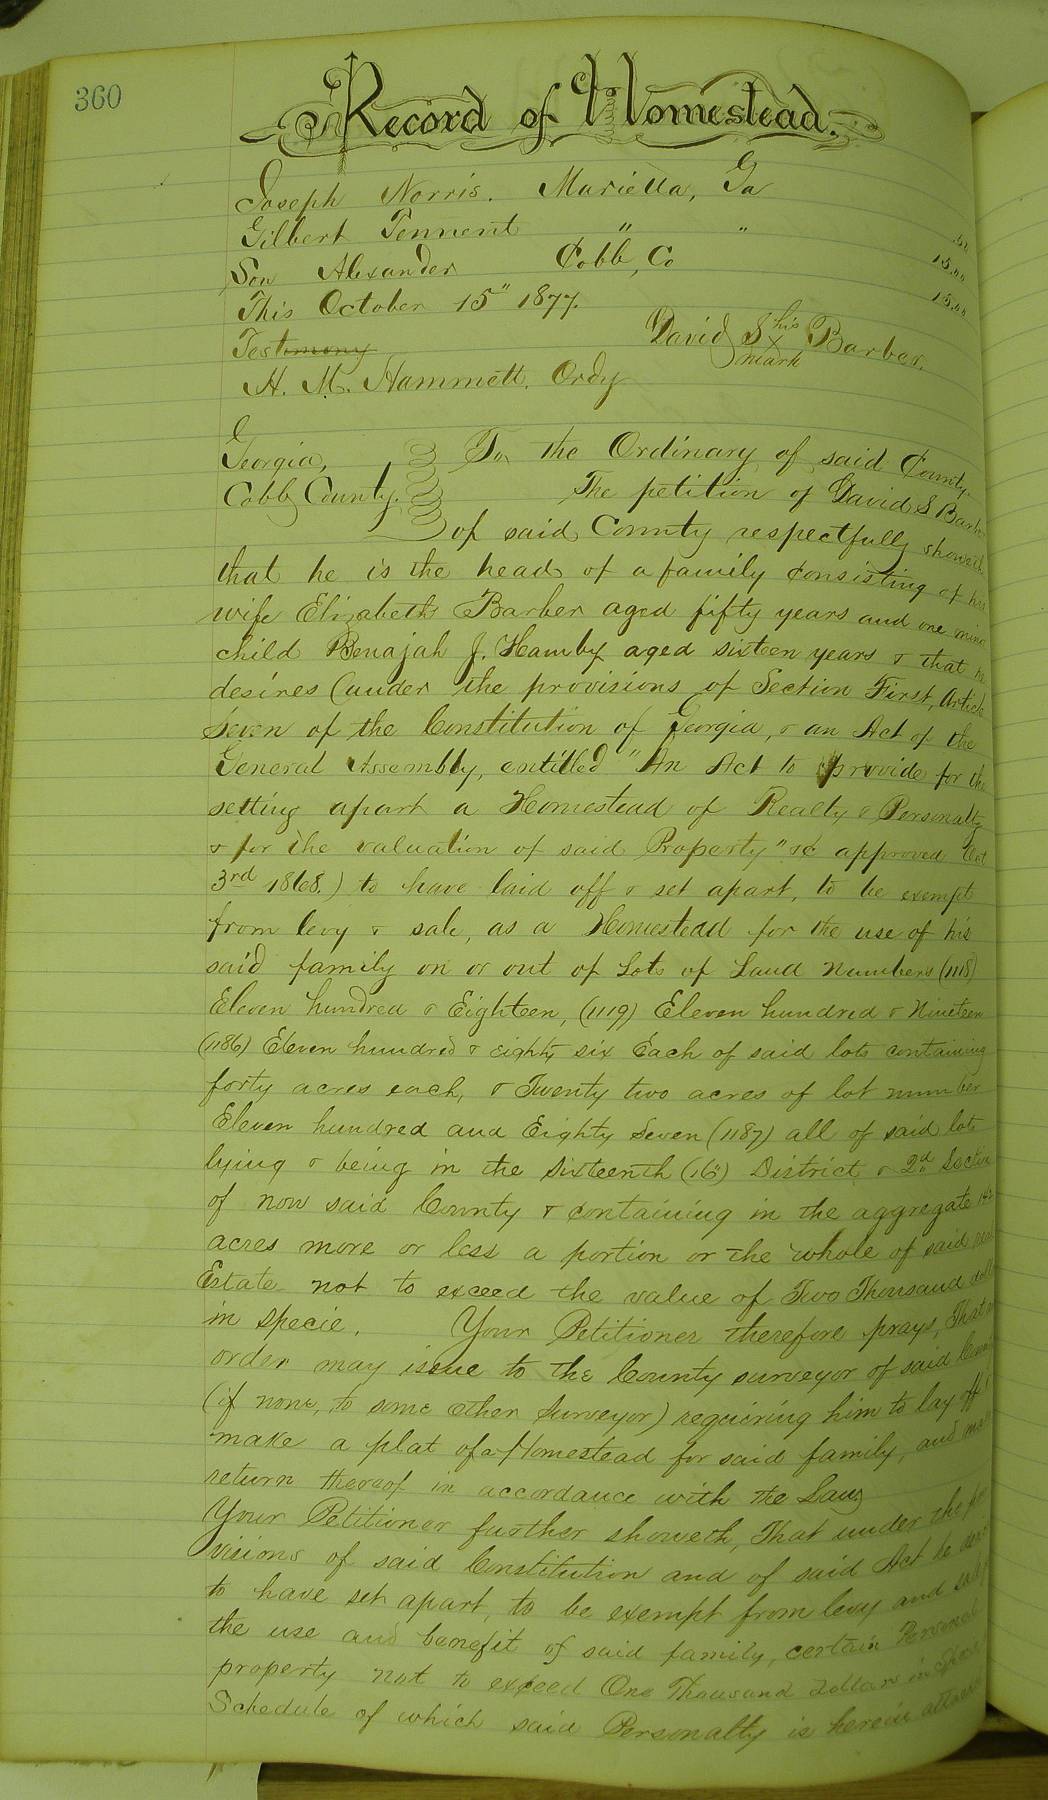 360
Record of Homestead.
Joseph Norris. Marietta, Ga
Gilbert Tennent " "
Son Alexander Cobb, Co 15.00
This October 15" 1877. 15.00
Testimony David S his x mark Barber.
H. M. Hammett. Ordy
Georgia, To the Ordinary of said County.
Cobb County. The petition of David S Barber
of said County respectfully showeth
that he is the head of a family consisting of his
wife Elizabeth Barber aged fifty years and one minor
child Benajah J. Hamby aged sixteen years & that he
desires (under the provisions of Section First, Article
Seven of the Constitution of Georgia, & an Act of the
General Assembly, entitled "An Act to provide for the
setting apart a Homestead of Realty & Personalty
& for the valuation of said Property" &c approved Oct
3rd 1868.) to have laid off & set apart, to be exempt
from levy & sale, as a Homestead for the use of his
said family on or out of Lots of Land Numbers (1118)
Eleven hundred & Eighteen, (1119) Eleven hundred & Nineteen
(1186) Eleven hundred & eighty six Each of said lots containing
forty acres each, & Twenty two acres of lot number
Eleven hundred and Eighty Seven (1187) all of said lots
lying & being in the Sixteenth (16") District & 2d Section
of now said County & containing in the aggregate 142
acres more or less a portion or the whole of said real
Estate not to exceed the value of Two Thousand dolls
in Specie. Your Petitioner therefore prays, That an
order may issue to the County surveyor of said County
(if none, to some other Surveyor) requiring him to lay off &
make a plat of a Homestead for said family, and make
return thereof in accordance with the Law,
Your Petitioner further showeth, That under the pro
visions of said Constitution and of said Act he desires
to have set apart, to be exempt from levy and sale for
the use and benefit of said family, certain Personal
property not to exceed One Thousand dollars in Specie
Schedule of which said Personalty is herein attached